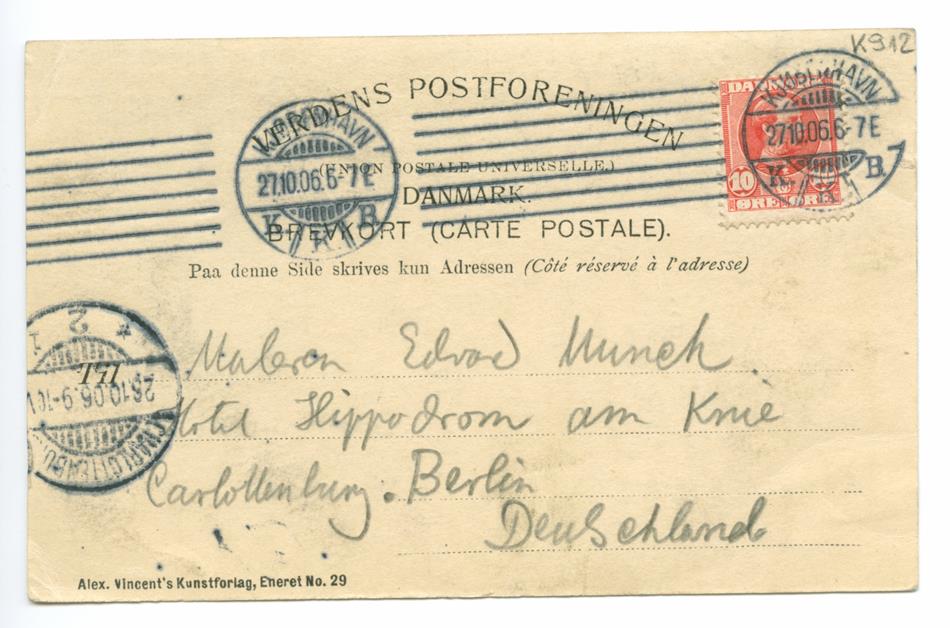 K912
VERDENS POSTFORENINGEN
(UNION POSTALE UNIVERSELLE.)
DANMARK.
BREVKORT (CARTE POSTALE).
Paa denne Side skrives kun Adressen (Côté réservé à l'adresse)
KJØBENHAVN
27.10.06.6-7E
K. B.
DANMARK
10 10
ØRE
KJØBENHAVN
27.10.06.6-7E
K. B.
2
1
26.10.06.9-10V
CHARLOTTENBU
151.
Maleren Edvard Munch.
Hotel Hippodrom am Knie
Carlottenburg. Berlin
Deutschland
Alex. Vincent's Kunstforlag, Eneret No. 29